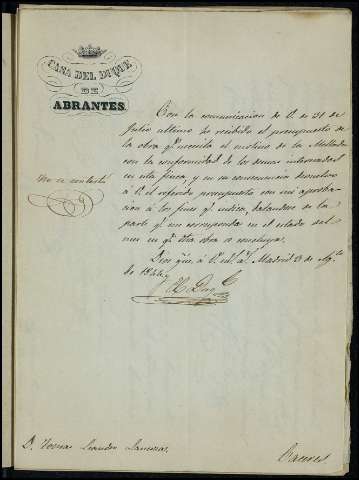 CASA DEL DUQUE
DE
ABRANTES.
Con la comunicacion de V. de 31 de
Julio ultimo he recibido el presupuesto de
la obra q.e necesita el molino de la
con la conformidad de los demas interesados
en esta finca, y en su consecuencia devuelvo
á V. el referido presupuesto con mi aproba-
cion á los fines q.e indica, datandose de la
parte q.e me corresponda en el estado del
mes en q.e dha obra se concluya.
Dios gue. á V. ms. as. Madrid 3 de Ag.to
de 18
El Duq.e
No se contestó
D. Tomas Leandro
Caceres